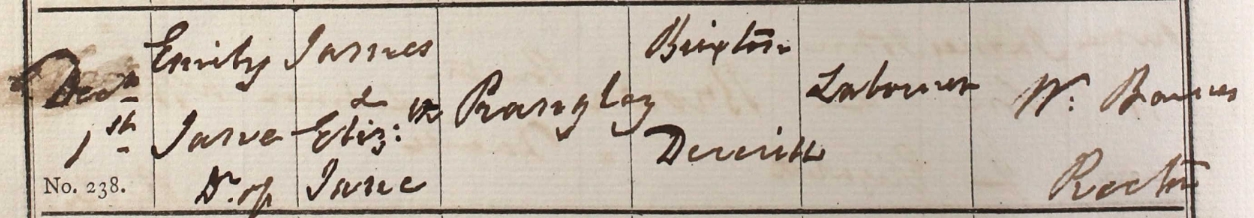 Decr
1st
No. 238.
Emily
Jane
Dr. of
James
&
Eliz:th
Jane
Prangley
Brixton
Deverill
Labourer
W: Barnes
Rector